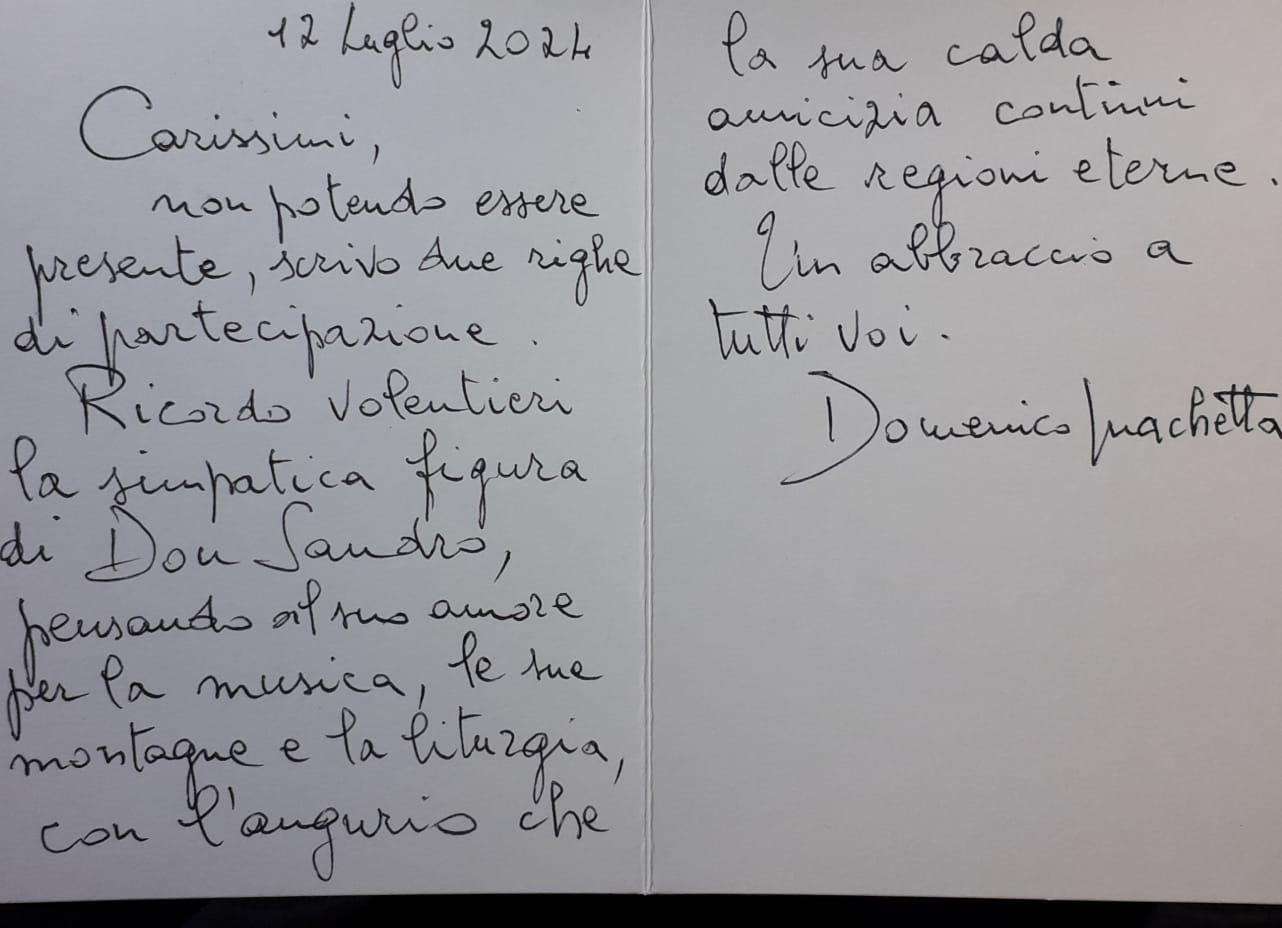 12 Luglio 2024
Carissimi,
non potendo essere
presente, scrivo due righe
di partecipazione.
Ricordo volentieri
la simpatica figura
di Don Sandro,
pensando al suo amore
per la musica, le sue
montagne e la liturgia,
con l'augurio che
la sua calda
amicizia continui
dalle regioni eterne.
Un abbraccio a
tutti voi.
Domenico Machetta